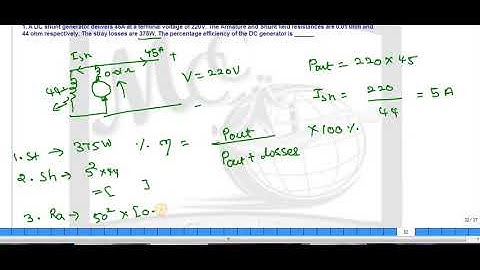 1. A DC shunt generator delivers 45A at a terminal voltage of 220V. The Armature and Shunt field resistances are 0.01 ohm and
44 ohm respectively. The stray losses are 375W. The percentage efficiency of the DC generator is ______
Ish 45A +
44Ω 0.01Ω V = 220V
Pout = 220 × 45
Ish = 220/44 = 5 A
1. St → 375W % η = Pout / Pout + losses × 100 %
2. Sh → 5² × 44
= [ ]
3. Ra → 50² × [0.
32 / 37